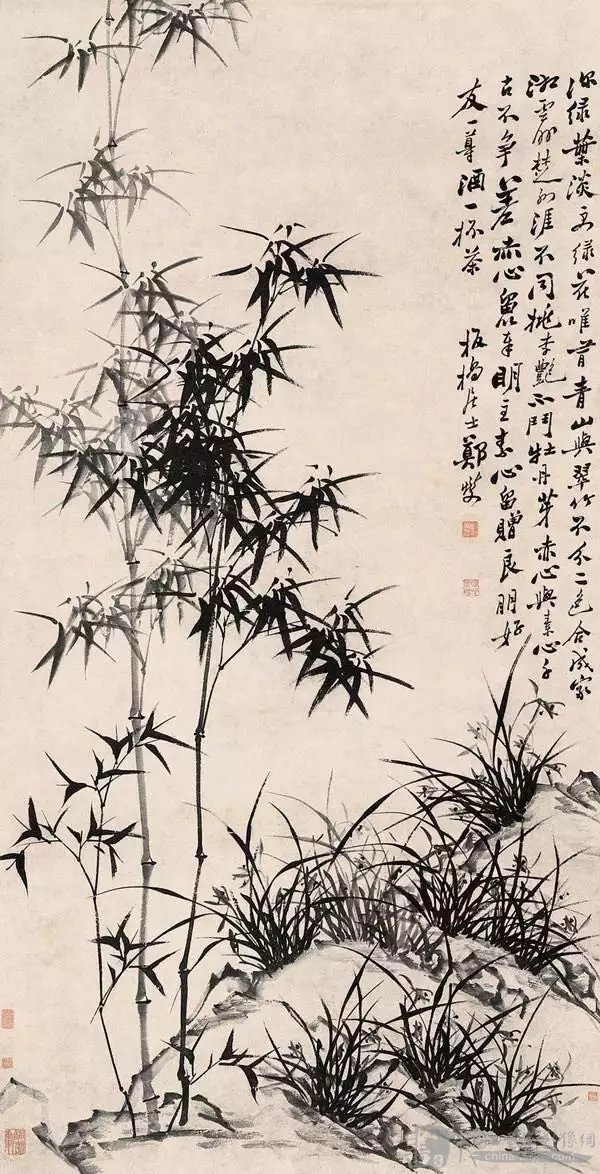 深绿葉淡绿花唯有青山與翠竹不分二色合成家
湘雲外楚江涯不同桃李艷不鬥牡丹芽赤心與素心千
古不爭差赤心留奉明主素心留贈良朋好
友一尊酒一杯茶 板橋居士鄭燮
像網